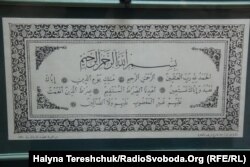 بسم الله الرحمن الرحيم
الحمد لله رب العلمين الرحمن الرحيم ملك يوم الدين إياك
نعبد وإياك نستعين اهدنا الصراط المستقيم صراط الذين أنعمت
عليهم غير المغضوب عليهم ولا الضالين
Halyna Tereshchuk/RadioSvoboda.Org (RFE/RL)